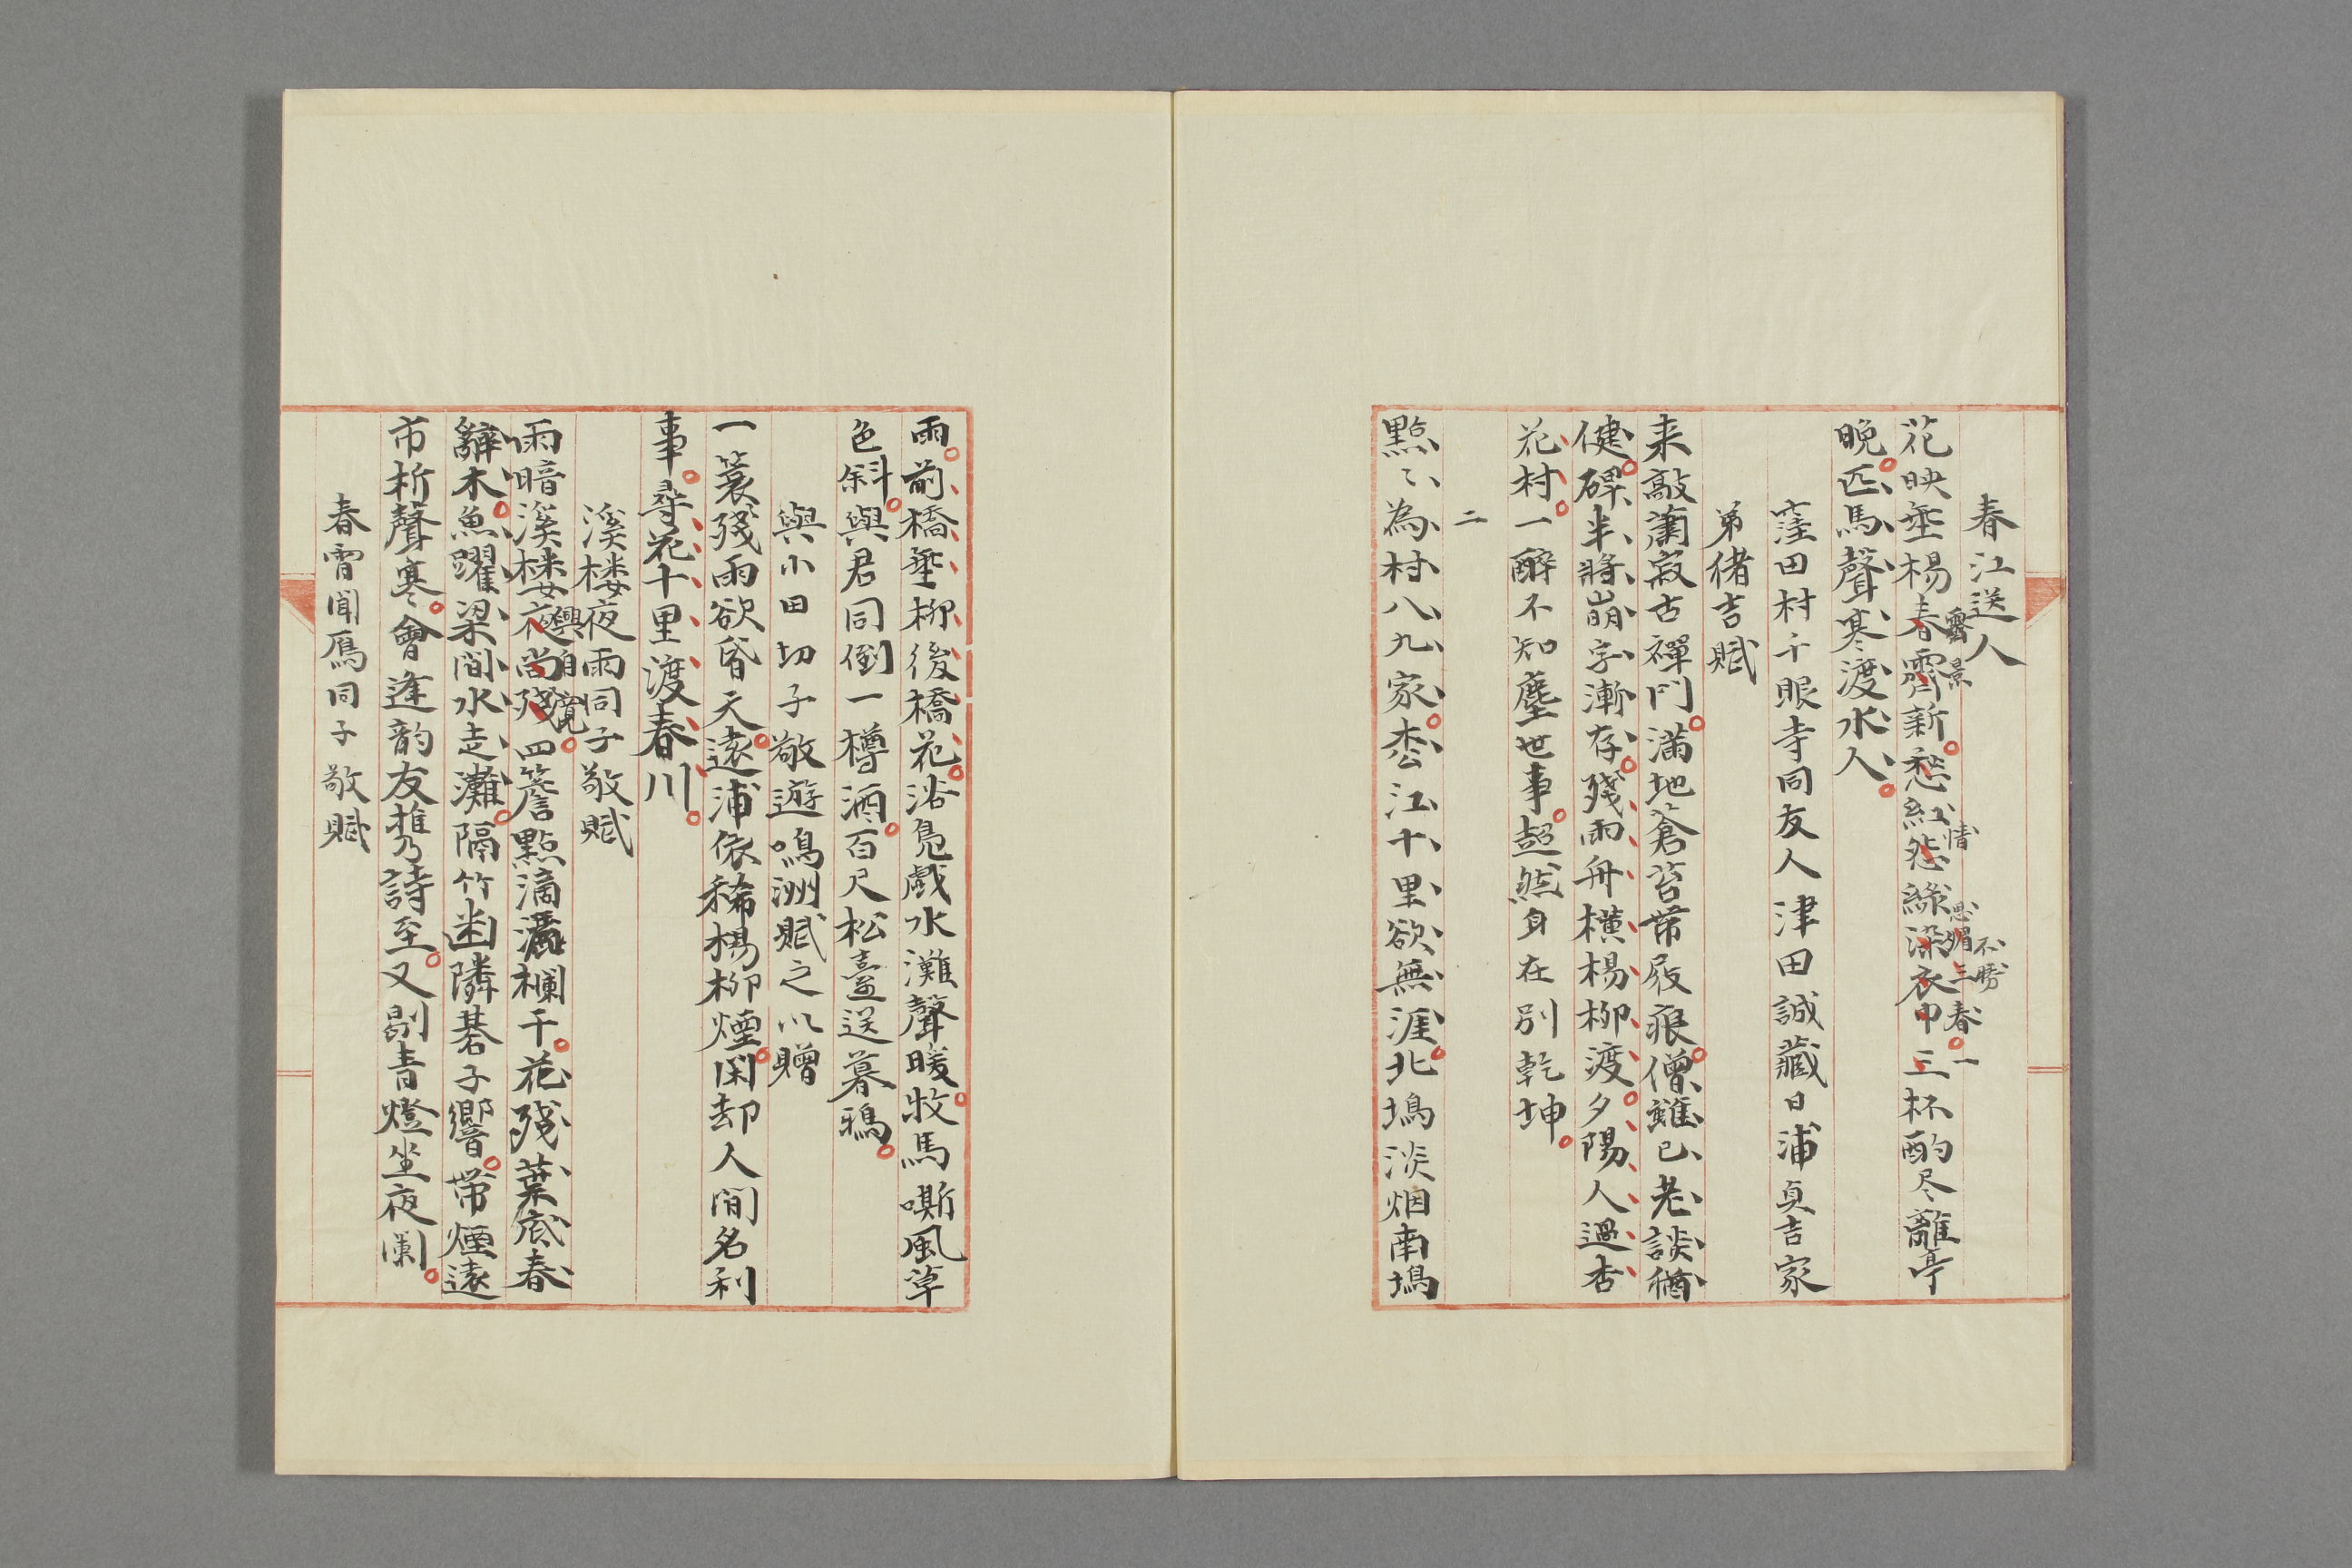 春江送人
花映垂楊春霽新愁紅怨綠深衣巾三杯酌尽離亭
霽景
情
不勝
三春一
晩匹馬聲寒渡水人
窪田村千眼寺同友人津田誠藏日浦貞吉家
弟緒吉賦
来敲蕭寂古禪門滿地蒼苔帯屐痕僧雖已老談猶
健碑半將崩字漸存殘雨舟橫楊柳渡夕陽人過杏
花村一醉不知塵世事超然身在別乾坤
二
點〻為村八九家杏江十里欲無涯北塢淡烟南塢
雨前橋垂柳後橋花浴鳧戲水灘聲暖牧馬嘶風草
色斜與君同倒一樽酒百尺松臺送暮鴉
與小田切子敬遊鳴洲賦之以贈
一簑殘雨欲昏天遠浦依稀楊柳煙閑却人間名利
事尋花十里渡春川
溪楼夜雨同子敬賦
雨暗溪楼夜尚殘四簷點滴灑欄干花殘葉底春
興自寛
辭木魚躍梁間水走灘隔竹幽隣碁子響帯煙遠
市柝聲寒會逢韵友携詩至又剔青燈坐夜闌
春宵聞雁同子敬賦